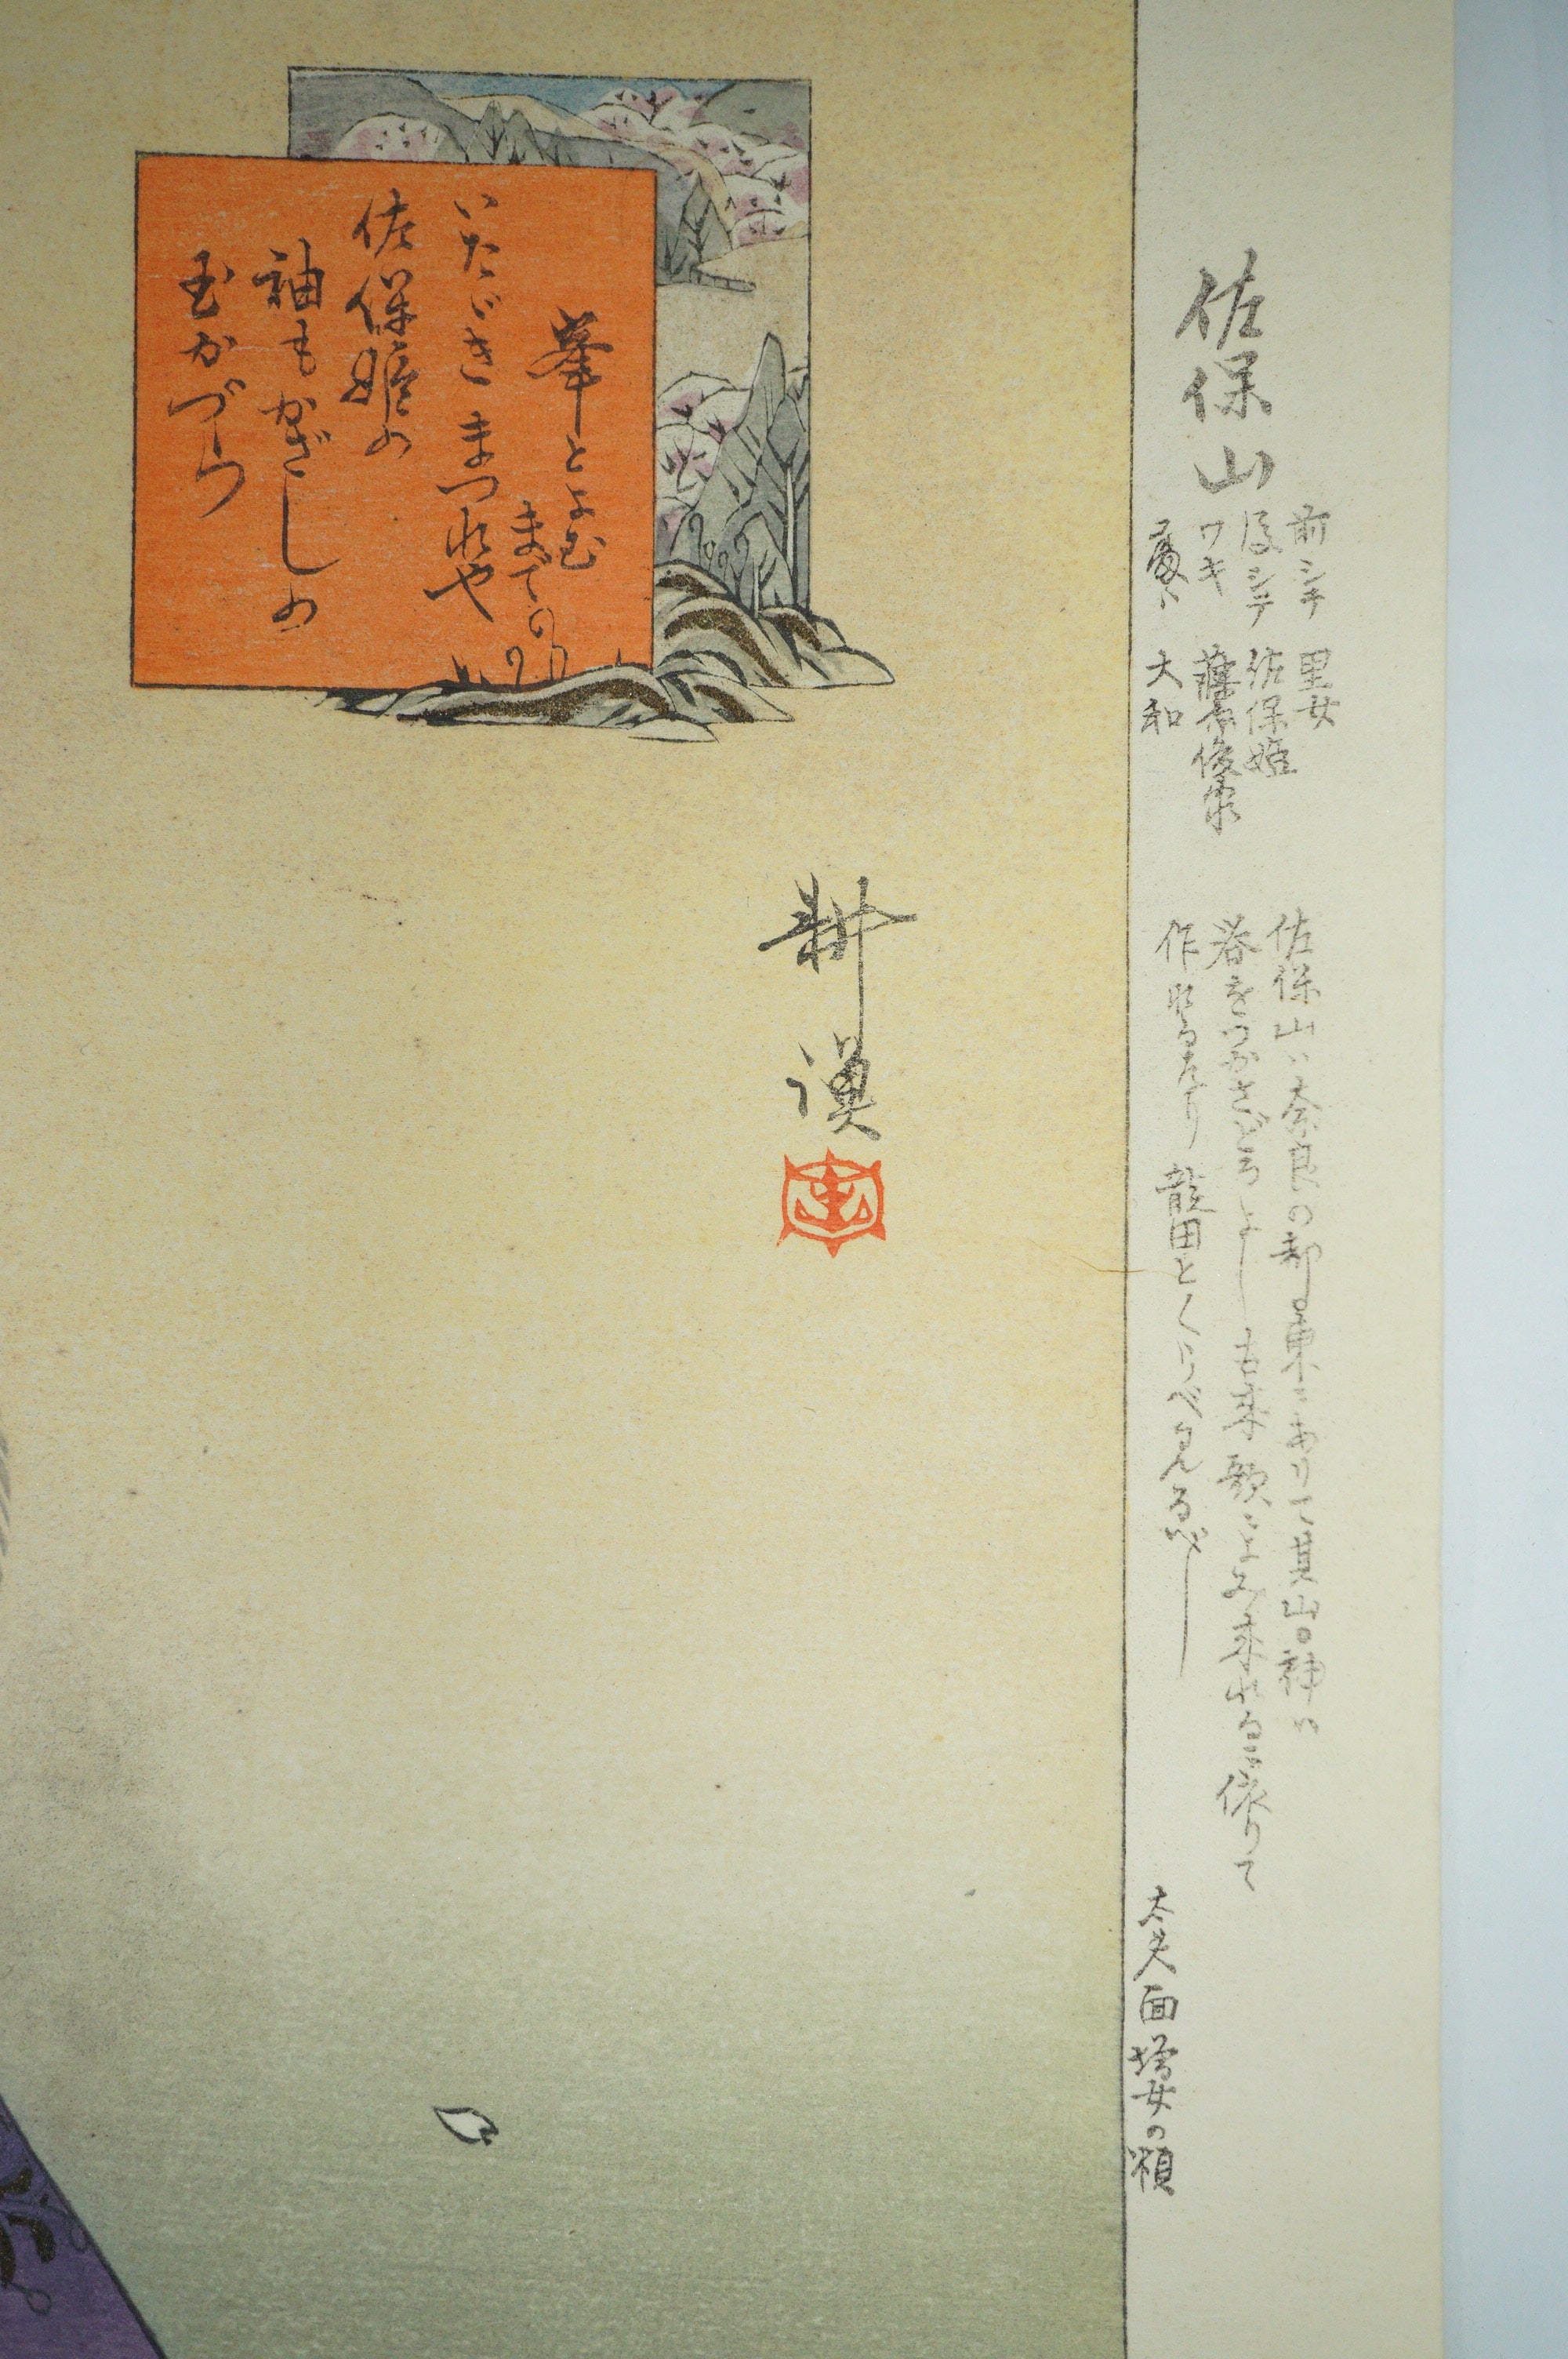 峯とよむ
までの
いたゞきまつれや
佐保姫の
袖もかざしの
玉かづら
耕漁
佐保山
前シテ 里女
後シテ 佐保姫
ワキ 藤原俊家
大和
佐保山ハ奈良の都の東ニありて其山の神ハ
春をつかさどるよし 古来歌によみ来れるに依りて
作れるなり 龍田とくらべみるべし
太夫面増女の類